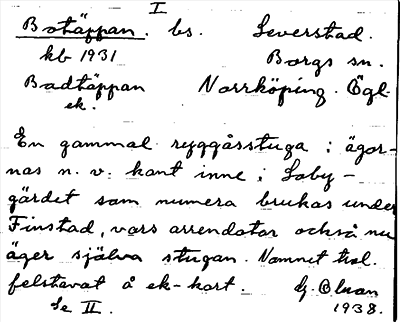 I
Botäppan. bs. Leverstad.
kb 1931 Borgs sn.
Badtäppan Norrköping. Ögl.
ek.
En gammal ryggåsstuga i ägor-
nas n. v. kant inne i Loby-
gärdet som numera brukas under
Finstad, vars arrendator också nu
äger själva stugan. Namnet trol.
felstavat å ek-kart. Hj. Olsson
Se II. 1938.